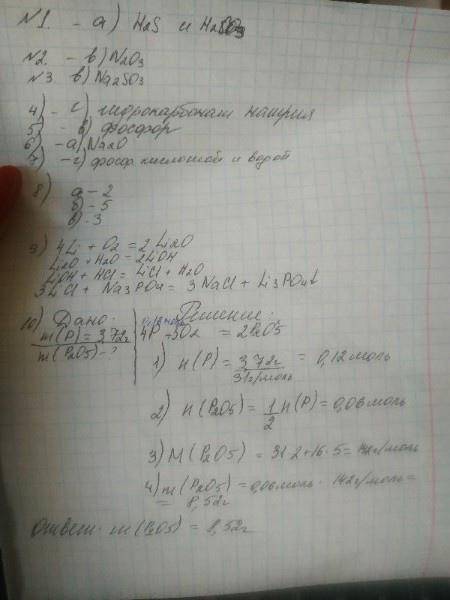 №1. - а) H2S и H2SO3
№2. - в) N2O3
№3 в) Na2SO3
4) - г) гидрокарбонат натрия
5) - в) фосфор
6) - а) Na2O
7) - г) фосф. кислотой и водой
8) а - 2
б) - 5
в) - 3
9) 4Li + O2 = 2Li2O
Li2O + H2O = 2LiOH
LiOH + HCl = LiCl + H2O
3LiCl + Na3PO4 = 3NaCl + Li3PO4↓
10) Дано: Решение:
m(P) = 3,72г 4P + 5O2 = 2P2O5
m(P2O5) - ?
1) n(P) = 3,72г / 31г/моль = 0,12 моль
2) n(P2O5) = 1/2 n(P) = 0,06 моль
3) M(P2O5) = 31·2+16·5 = 142г/моль
4) m(P2O5) = 0,06 моль · 142г/моль =
= 8,52г
Ответ: m(P2O5) = 8,52г